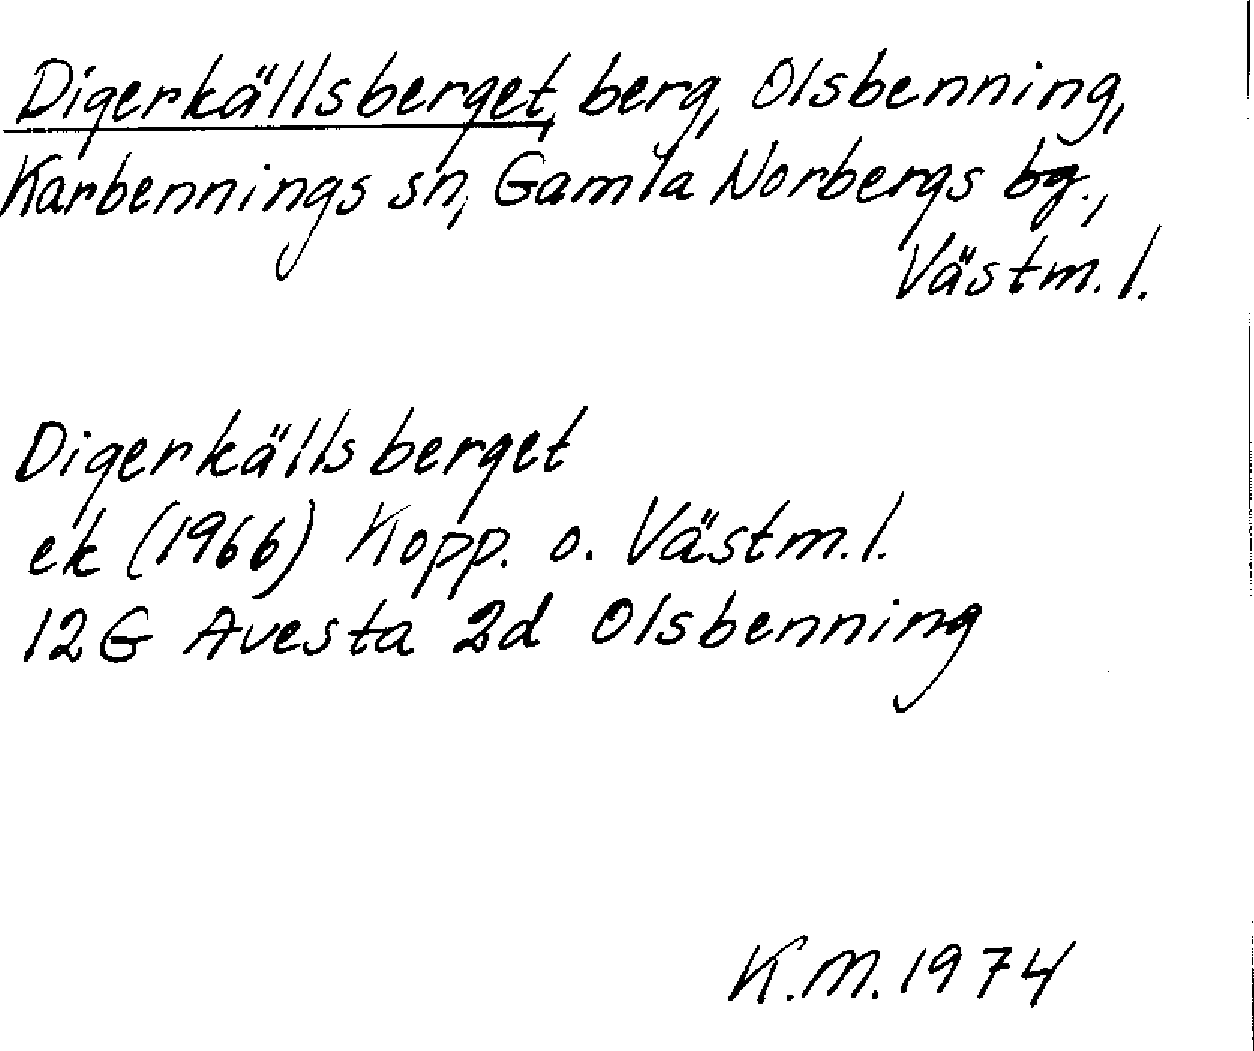 Digerkällsberget, berg, Olsbenning,
Karbennings sn, Gamla Norbergs bg.,
Västm. l.
Digerkällsberget
ek (1966) Kopp. o. Västm. l.
12G Avesta 2d Olsbenning
K.M. 1974